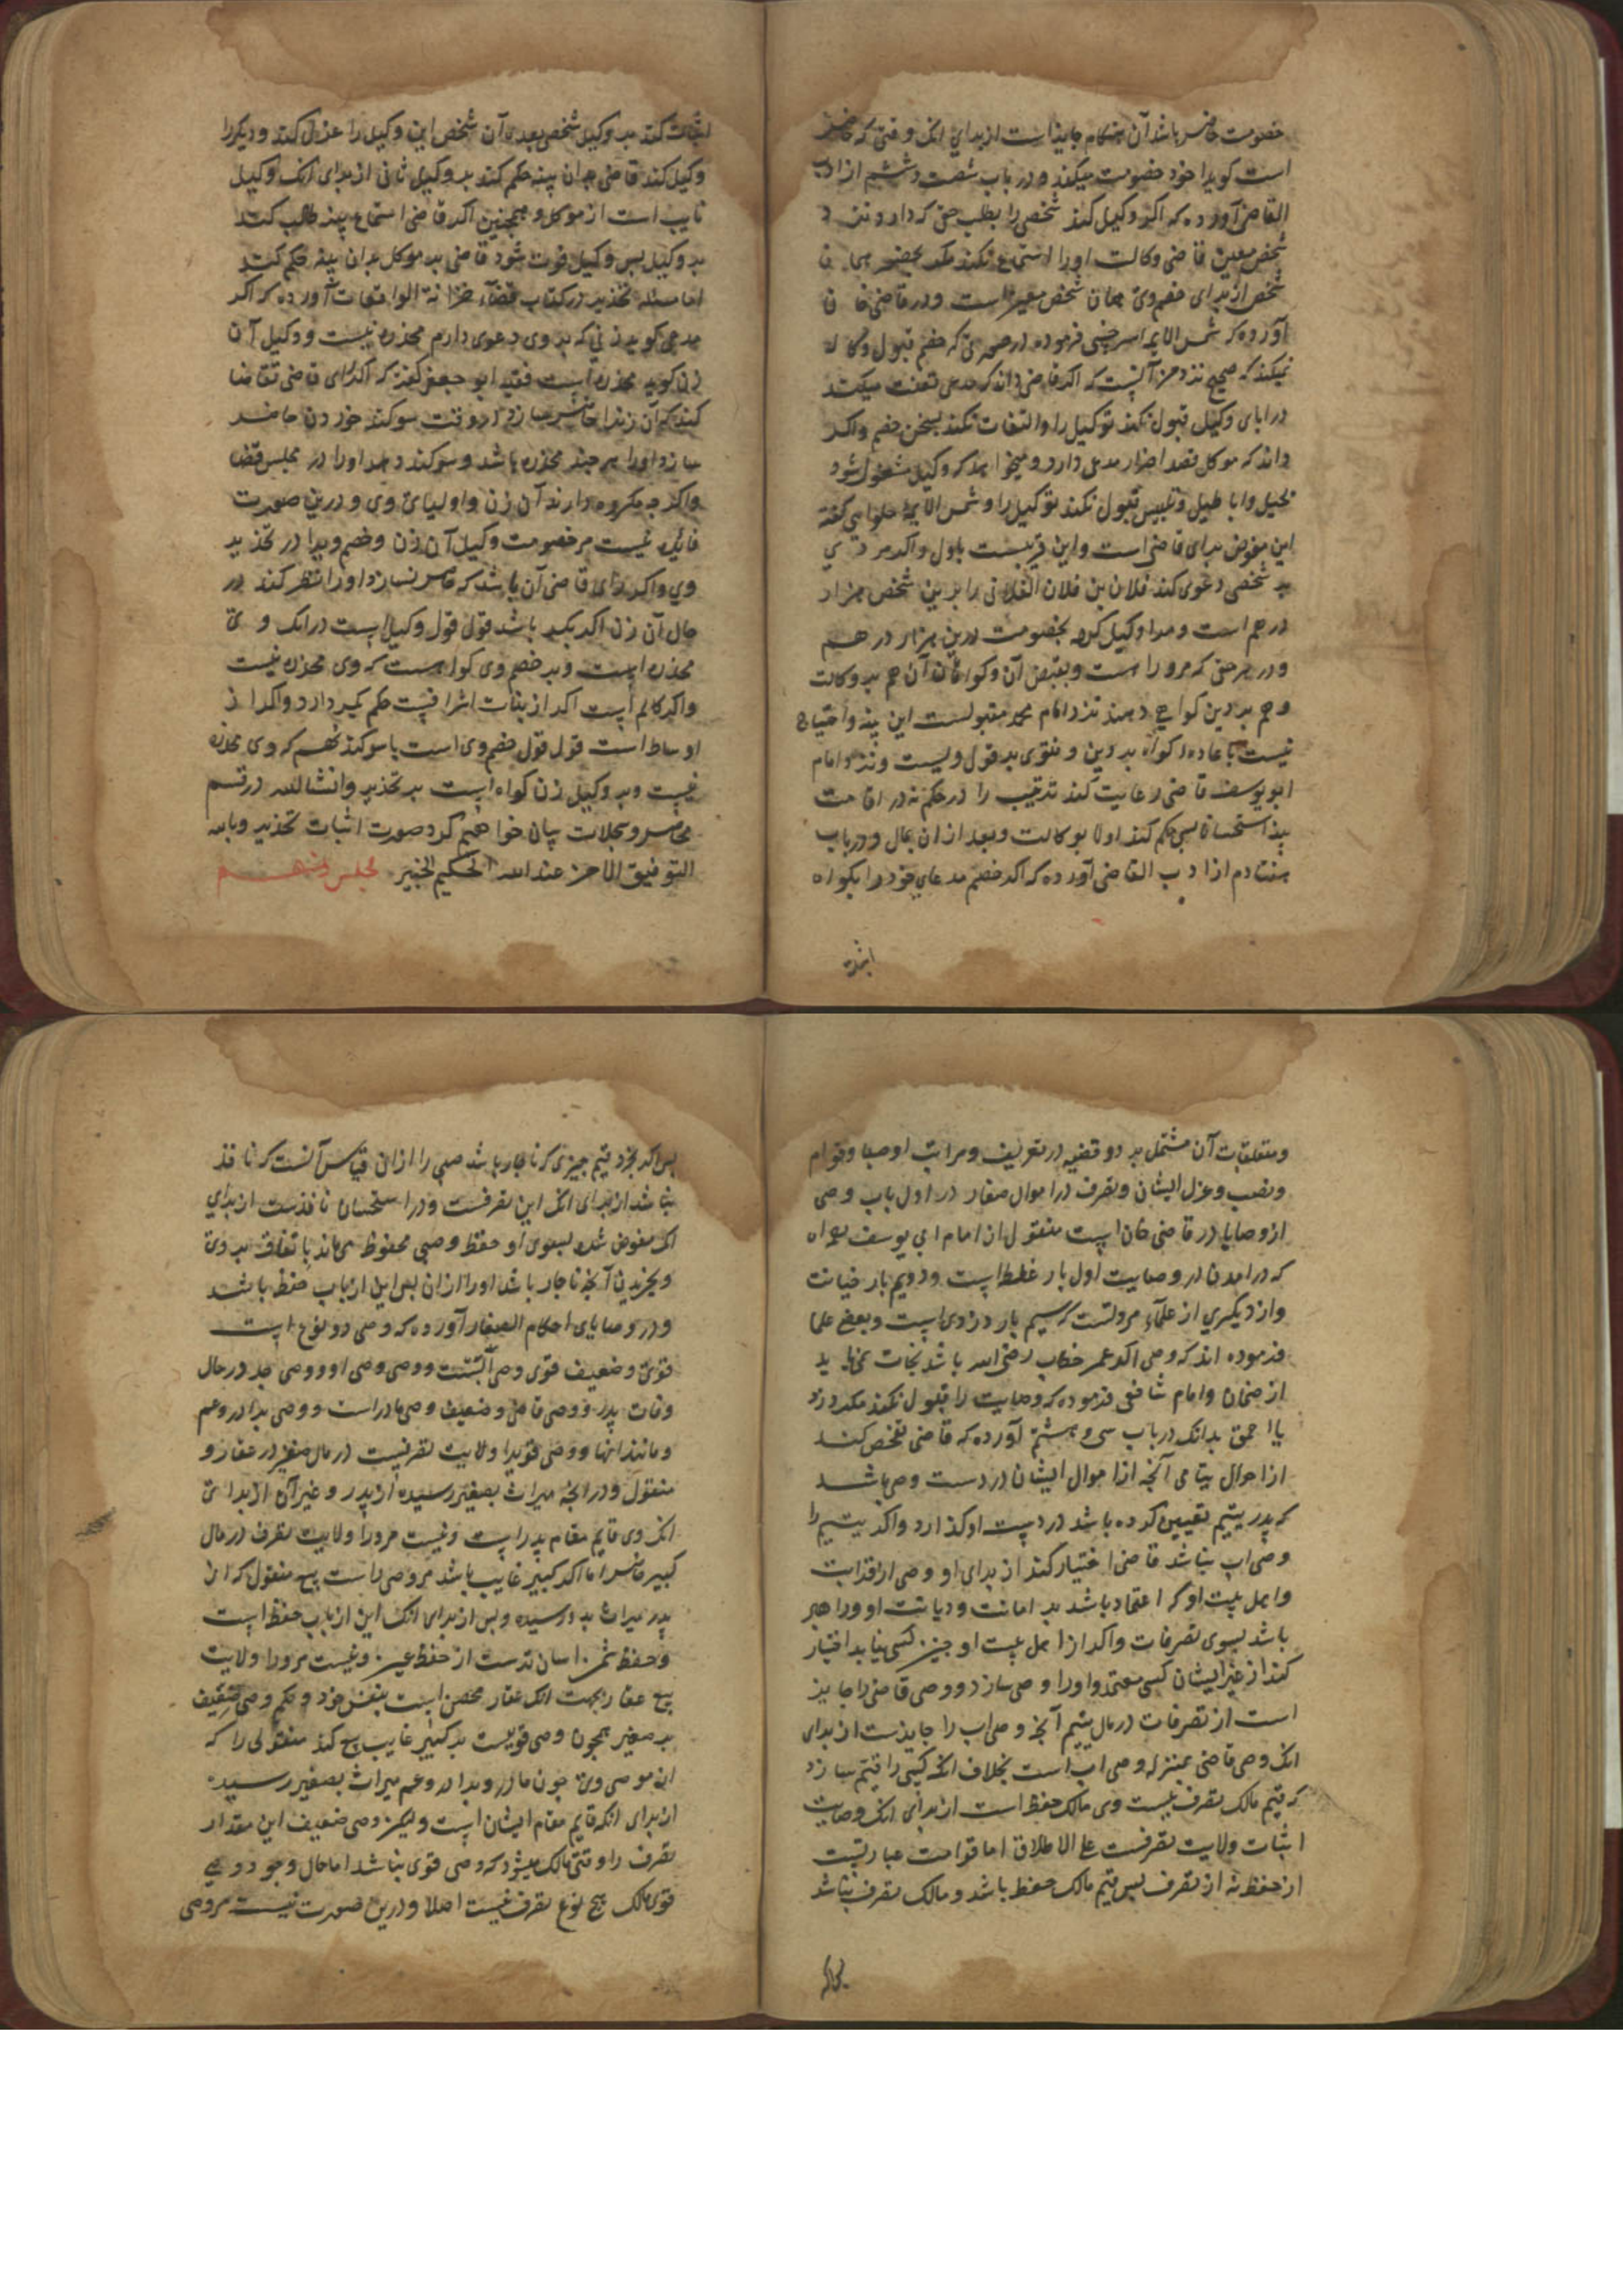 خصومت حاضر باشد آن هنکام جایز است از برای انک وقتی که حاضر
است کویا خود خصومت میکند و در باب شصت و ششم از ادب
القاضی آورده که اکر وکیل کند شخصی را بطلب حق که دارد
شخص معین قاضی وکالت اورا استماع نکند مکر بحضور
شخص از برای خصم وی همان شخص معین است و در قاضی
آورده که شمس الایمه سرخسی فرموده در صورتی که خصم قبول
نمیکند که صحیح نزد من آنست که اکر قاضی داند که مدعی تعنت میکند
در ابای وکیل قبول نکند توکیل را و التفات نکند بسخن خصم واکر
داند که موکل قصد اضرار مدعی دارد و میخواهد که وکیل مشغول شود
بحیل و اباطیل و تلبیس قبول نکند توکیل را و شمس الایمه حلوایی کفته
این مفوض برای قاضی است و این قریبست باول واکر مر
بر شخصی دعوی کند فلان بن فلان الفلانی را برین شخص هزار
درهم است و مرا وکیل کرده بخصومت درین هزار درهم
و در هر حقی که مرو را است و بقبض آن و کواهان آن هم بر وکالت
و هم بر دین کواهی دهند نزد امام محمد مقبولست این بینه و احتیاج
نیست باعاده کواه بر دین و فتوی بر قول ویست و نزد امام
ابو یوسف قاضی رعایت کند ترتیب را در حکم نه در اقامت
بینه استحسانا پس حکم کند اولا بوکالت و بعد از ان بمال و در باب
هفتادم از ادب القاضی آورده که اکر خصم مدعای خود را بکواه
اثبات کند بر وکیل شخص بعده آن شخص این وکیل را عزل کند و دیکر را
وکیل کند قاضی بدان بینه حکم کند بر وکیل ثانی از برای انک وکیل
نایب است از موکل و همچنین اکر قاضی استماع بینه طلب کند
بر وکیل پس وکیل فوت شود قاضی بر موکل بدان بینه حکم کند
اما مسئله تخدیر در کتاب قضاء خزانة الواقعات آورده که اکر
مدعی کوید زنی که بر وی دعوی دارم مخدره نیست و وکیل آن
زن کوید مخدره است فقیه ابو جعفر کفته که اکر رای قاضی تقاضا
کند که آن زنرا حاضر سازد در وقت سوکند خوردن حاضر
سازد اورا هر چند مخدره باشد و سوکند دهد اورا در مجلس قضا
واکر چه مکروه دارند آن زن و اولیای وی و درین صورت
فایده نیست مر خصومت وکیل آن زن و خصم ویرا در تخدیر
وی واکر رای قاضی آن باشد که حاضر نسازد اورا نظر کند در
حال آن زن اکر بکر باشد قول قول وکیل است در انک وی
مخدره است و بر خصم وی کواهست که وی مخدره نیست
واکر کالم است اکر از بنات اشرافست حکم بکر دارد واکر از
اوساط است قول قول خصم وی است با سوکند خصم که وی مخدره
نیست و بر وکیل زن کواه است بر تخدیر وانشا الله در قسم
محاضر و سجلات بیان خواهیم کرد صورت اثبات تخدیر و بالله
التوفیق الاحز عند الله الحکیم الخبیر مجلس دهم
و متعلقات آن مشتمل بر دو قضیه در تعریف و مراتب اوصیا و قوام
و نصب و عزل ایشان و تصرف در اموال صغار در اول باب وصی
از وصایا در قاضی خان است منقول از امام ابی یوسف
که در امدن در وصایت اول بار غلط است و دویم بار خیانت
و از دیکری از علماء مرویست که سیم بار دزدی است و بعض علما
فرموده اند که وصی اکر عمر خطاب رضی الله باشد نجات نمی یابد
از ضمان و امام شافعی فرموده که وصایت را قبول نکند مکر دزد
یا احمق بدانک در باب سی و هشتم آورده که قاضی تفحص کند
از احوال یتامی آنچه از اموال ایشان در دست وصی باشد
که پدر یتیم تعیین کرده باشد در دست او کذارد واکر یتیم را
وصی اب نباشد قاضی اختیار کند از برای او وصی از قرابت
و اهل بیت او که اعتماد باشد بر امانت و دیانت او و راهبر
باشد بسوی تصرفات واکر از اهل بیت او چنین کسی نیابد اختیار
کند از غیر ایشان کسی معتمد و اورا وصی سازد و وصی قاضی را جایز
است از تصرفات در مال یتیم آنچه وصی اب را جایزست از برای
انک وصی قاضی بمنزله وصی اب است بخلاف انک کسی را قیم سازد
که قیم مالک تصرف نیست وی مالک حفظ است از برای انک وصایت
اثبات ولایت تصرفست علی الاطلاق اما قوامت عبارتست
از حفظ نه از تصرف پس قیم مالک حفظ باشد و مالک تصرف نباشد
پس اکر بخرد قیم چیزی که ناچار باشد صبی را از ان قیاس آنست که نافذ
نباشد از برای انک این تصرفست و در استحسان نافذست از برای
انک مفوض شده بسوی او حفظ و صبی محفوظ می ماند بانفاق بر وی
و بخریدن آنچه ناچار باشد اورا از ان پس این از باب حفظ باشد
و در وصایای احکام الصغار آورده که وصی دو نوع است
قوی و ضعیف قوی وصی ابست و وصی وصی او و وصی جد در حال
وفات پدر و وصی قاضی و ضعیف وصی مادر است و وصی برادر و عم
و مانند اینها و وصی قویرا ولایت تصرفست در مال صغیر در عقار و
منقول و در انچه میراث بصغیر رسیده از پدر و غیر آن از برای
انک وی قایم مقام پدر است و نیست مرورا ولایت تصرف در مال
کبیر حاضر اما اکر کبیر غایب باشد مر وصی راست بیع منقول که از
پدر میراث بدو رسیده و بس از برای انک این از باب حفظ است
و حفظ ثمن اسان ترست از حفظ عین و نیست مرورا ولایت
بیع عقار بجهت انک عقار محصن است بنفس خود و حکم وصی ضعیف
بر صغیر همچون وصی قویست بر کبیر غایب بیع کند منقولی را که
از موصی وی چون مادر و برادر و عم میراث بصغیر رسیده
از برای انکه قایم مقام ایشان است و لیکن وصی ضعیف این مقدار
تصرف را وقتی مالک میشود که وصی قوی نباشد اما حال وجود وصی
قوی مالک هیچ نوع تصرف نیست اصلا و درین صورت نیست مر وصی